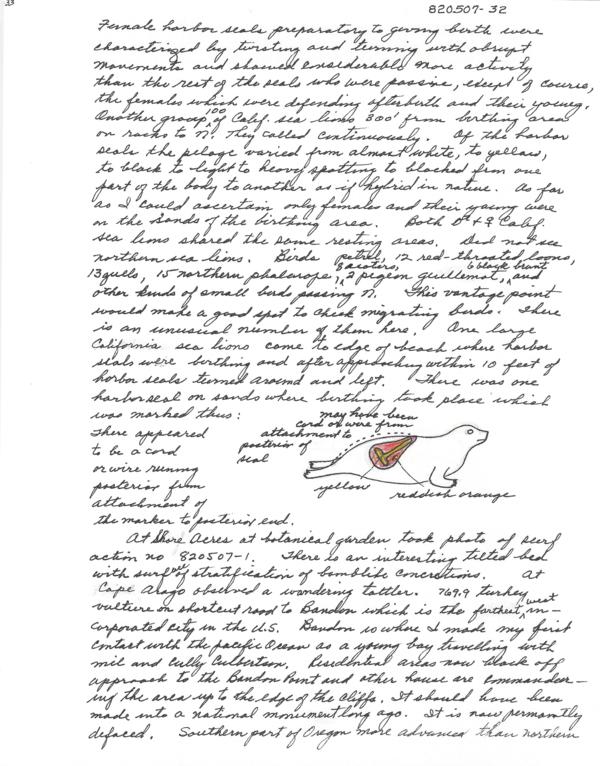 33
820507-32
Female harbor seals preparatory to giving birth were
characterized by twisting and turning with abrupt
movements and showed considerable more activity
than the rest of the seals who were passive, except of course,
the females which were defending afterbirth and their young.
Another group, 100 of Calif. sea lions 300' from birthing area
on rocks to N. They called continuously. Of the harbor
seals the pelage varied from almost white, to yellow,
to black to light to heavy spotting to blocked from one
part of the body to another as if hybrid in nature. As far
as I could ascertain only females and their young were
on the sands of the birthing area. Both ♂ + ♀ Calif.
sea lions shared the same resting areas. Did not see
northern sea lions. Birds petrel, 12 red-throated loons,
8 scoters, 6 black brant
13 gulls, 15 northern phalarope, 2 pigeon guillemot, and
other kinds of small birds passing N. This vantage point
would make a good spot to check migrating birds. There
is an unusual number of them here. One large
California sea lions came to edge of beach where harbor
seals were birthing and after approaching within 10 feet of
harbor seals turned around and left. There was one
harbor seal on sands where birthing took place which
was marked thus:
may have been
cord or wire from
attachment to
posterior of
seal
There appeared
to be a cord
or wire running
posterior from
attachment of
the marker to posterior end.
yellow
reddish orange
At Shore Acres at botanical garden took photo of surf
action no 820507-1. There is an interesting tilted bed
with surf of stratification of bomblike concretions. At
Cape Arago observed a wandering tattler. 769.9 turkey
vulture on shortcut road to Bandon which is the farthest west in-
corporated city in the U.S. Bandon is where I made my first
contact with the pacific Ocean as a young boy travelling with
mil and Cully Culbertson. Residential areas now block off
approach to the Bandon Point and other house are commandeer-
ing the area up to the edge of the cliffs. It should have been
made into a national monument long ago. It is now permantly
defaced. Southern part of Oregon more advanced than northern